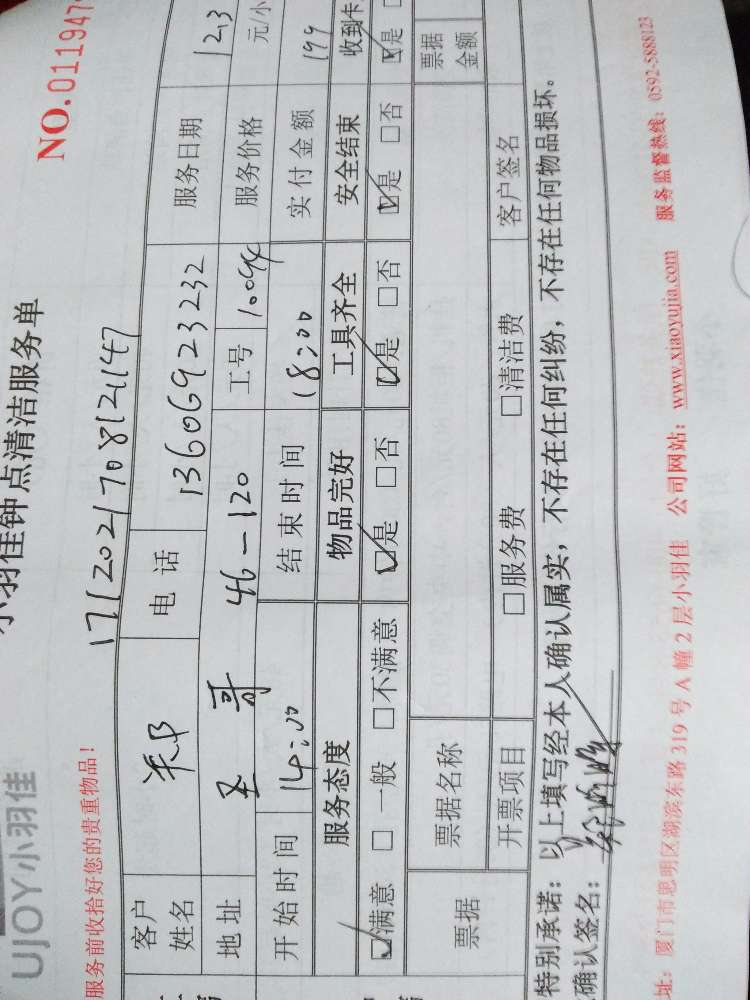 UJOY小羽佳
小羽佳钟点清洁服务单
NO.011947
服务前收拾好您的贵重物品！
1712021708121147
客户姓名 郑 电话 13606923232 服务日期 12.3
地址 46-120 工号 服务价格 元/小
开始时间 14:00 结束时间 18:00 实付金额 199
服务态度 物品完好 工具齐全 安全结束 收到卡
☑满意 □一般 □不满意 ☑是 □否 ☑是 □否 ☑是 □否 ☑是
票据 票据名称 票据金额
开票项目 □服务费 □清洁费 客户签名
特别承诺：以上填写经本人确认属实，不存在任何纠纷，不存在任何物品损坏。
确认签名：
址：厦门市思明区湖滨东路319号A幢2层小羽佳 公司网站：www.xiaoyujia.com 服务监督热线：0592-5888123